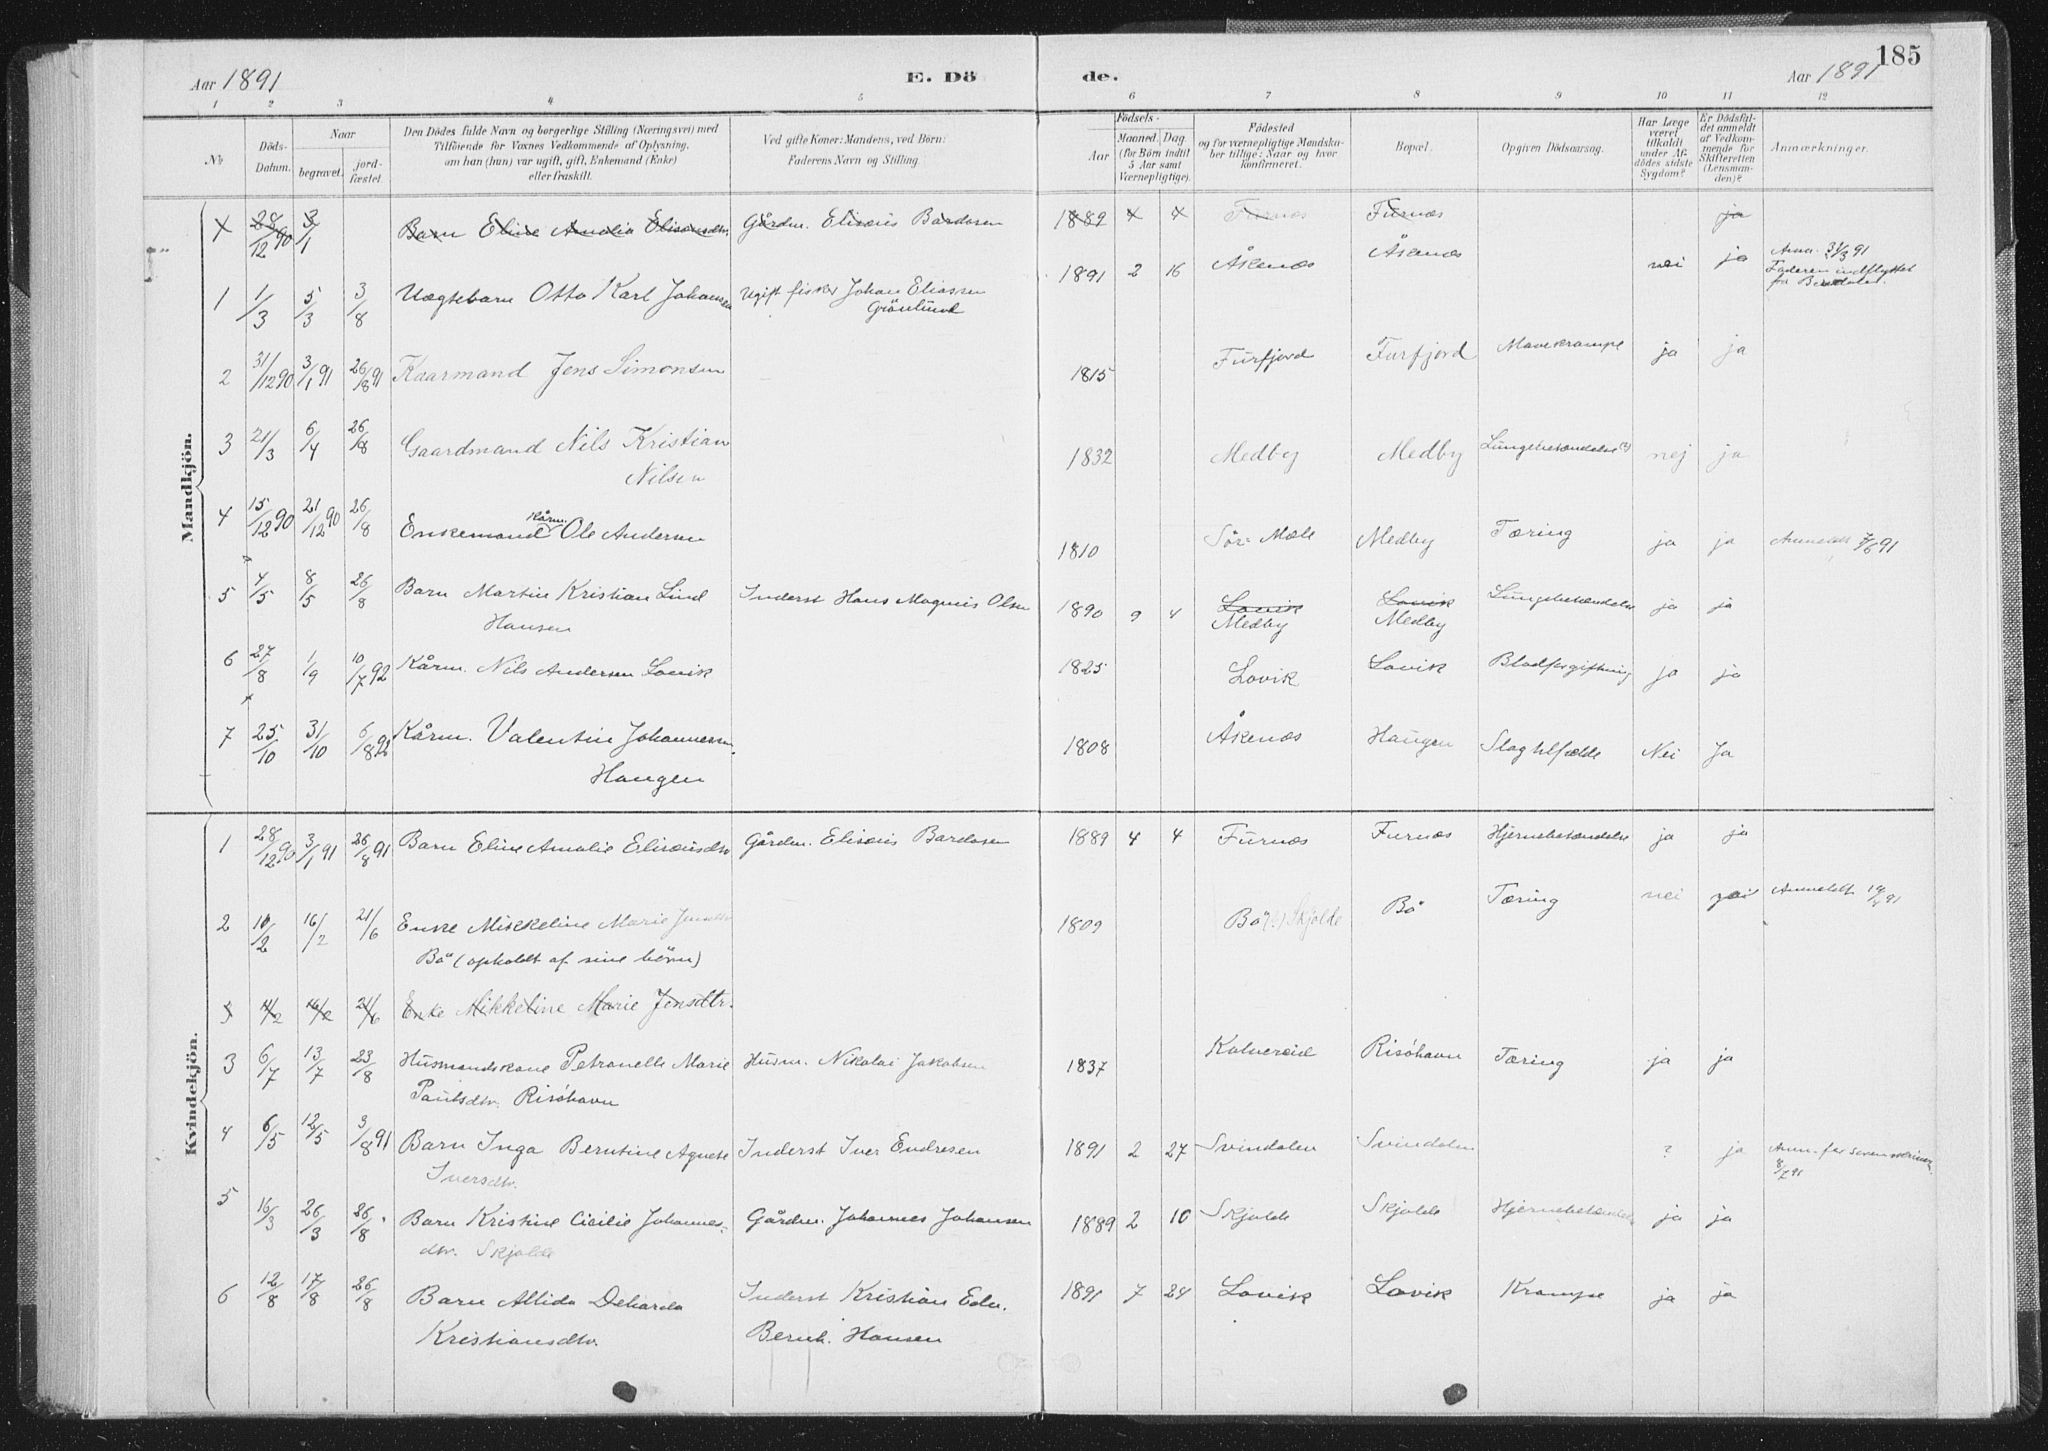 185
Aar 1891
E. Dö
de.
Aar 1891
1 2 3 4 5 6 7 8 9 10 11 12
№
Döds-Datum.
Naar
begravet.
jord-fæstet.
Den Dödes fulde Navn og borgerlige Stilling (Næringsvei) med
Tilföiende for Voxnes Vedkommende af Oplysning,
om han (hun) var ugift, gift, Enkemand (Enke)
eller fraskilt.
Ved gifte Koner: Mandens, ved Börn:
Faderens Navn og Stilling.
Födsels-
Aar
Maaned.
Dag.
(for Börn indtil
5 Aar samt
Værnepligtige).
Födested
og for værnepligtige Mandska-
ber tillige: Naar og hvor
konfirmeret.
Bopæl.
Opgiven Dödsaarsag.
Har Læge
været
tilkaldt
under Af-
dödes sidste
Sygdom?
Er Dödsfal-
det anmeldt
af Vedkom-
mende for
Skifteretten
(Lensman-
den)?
Anmærkninger.
Mandkjön.
28/12 90 3/1 Barn Eline Amalie Elisæusdtr. Gårdm. Elisæus Bardosen 1889 4 4 Furnæs Furnæs ja
1 1/3 5/3 3/8 Uægtebarn Otto Karl Johansen Ugift fisker Johan Eliassen 1891 2 16 Åkenæs Åkenæs nei ja 31/3 91
Grönlund Faderen indflyttet
fra
2 31/12 90 3/1 91 26/8 91 Kaarmand Jens Simonsen 1815 Furfjord Furfjord Mavekrampe ja ja
3 21/3 6/4 26/8 Gaardmand Nils Kristian 1832 Medby Medby Lungebetændelse (?) nej ja
Nilsen
4 15/12 90 21/12 90 26/8 Enkemand Kårm. Ole Andersen 1810 Sör-Mæle Medby Tæring ja ja Anmeldt 7/6 91
5 4/5 8/5 26/8 Barn Martin Kristian Lind Inderst Hans Magnus Olsen 1890 9 4 Lovik Lovik Lungebetændelse ja ja
Hansen Medby Medby
6 27/8 1/9 10/7 92 Kårm. Nils Andersen Lovik 1825 Lovik Lovik Blodforgiftning ja ja
7 25/10 31/10 6/8 92 Kårm. Valentin Johannessen 1808 Åkenæs Haugen Slagtilfælde Nei Ja
Haugen
Kvindekjön.
1 28/12 90 3/1 91 26/8 91 Barn Eline Amalie Elisæusdtr Gårdm. Elisæus Bardosen 1889 4 4 Furnæs Furnæs Hjernebetændelse ja ja
2 10/2 16/2 21/6 Enke Mikkeline Marie Jensdtr 1809 Bö (?) Skjolde Bö Tæring nei Anmeldt 91
Bö (opholdt af sine börn)
3 11/2 16/2 21/6 Enke Mikkeline Marie Jensdtr.
3 6/7 13/7 23/8 Husmandskone Petronelle Marie Husm. Nikolai Jakobsen 1837 Kalvereid Risöhavn Tæring ja ja
Paulsdtr. Risöhavn
4 6/5 12/5 3/8 91 Barn Inga Berntine Agnete Inderst Iver Endresen 1891 2 27 Svindalen Svindalen ? ja
Iversdtr. 8/7 91
5 16/3 26/3 26/8 Barn Kristine Cicilie Johannes- Gårdm. Johannes Johansen 1889 2 10 Skjolde Skjolde Hjernebetændelse ja ja
dtr. Skjolde
6 12/8 17/8 26/8 Barn Allida Deharda Inderst Kristian Edv. 1891 7 24 Lovik Lovik Krampe ja ja
Kristiansdtr. Bernh. Hansen